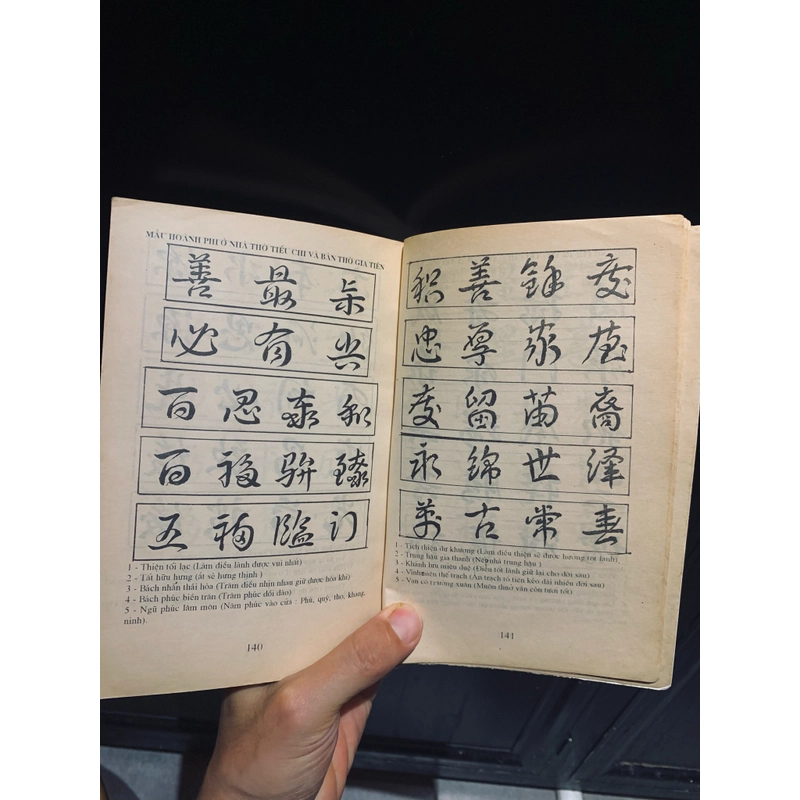 MẪU HOÀNH PHI Ở NHÀ THỜ TIỂU CHI VÀ BÀN THỜ GIA TIÊN
善最乐
必有兴
百忍泰和
百福骈臻
五福臨门
1 - Thiện tối lạc (Làm điều lành được vui nhất)
2 - Tất hữu hưng (ắt sẽ hưng thịnh )
3 - Bách nhẫn thái hòa (Trăm điều nhịn nhau giữ được hòa khí)
4 - Bách phúc biền trăn (Trăm phúc dồi dào)
5 - Ngũ phúc lâm môn (Năm phúc vào cửa : Phú, quý, thọ, khang,
ninh).
140
积善餘慶
忠厚家聲
慶留苗裔
永綿世澤
萬古常春
1 - Tích thiện dư khương (Làm điều thiện sẽ được hưởng tốt lành)
2 - Trung hậu gia thanh (Nếp nhà trung hậu )
3 - Khánh lưu miêu duệ (Điều tốt lành giữ lại cho đời sau)
4 - Vĩnh miên thế trạch (Ân trạch tổ tiên kéo dài nhiều đời sau)
5 - Vạn cổ trường xuân (Muôn thuở vẫn còn tươi tốt)
141